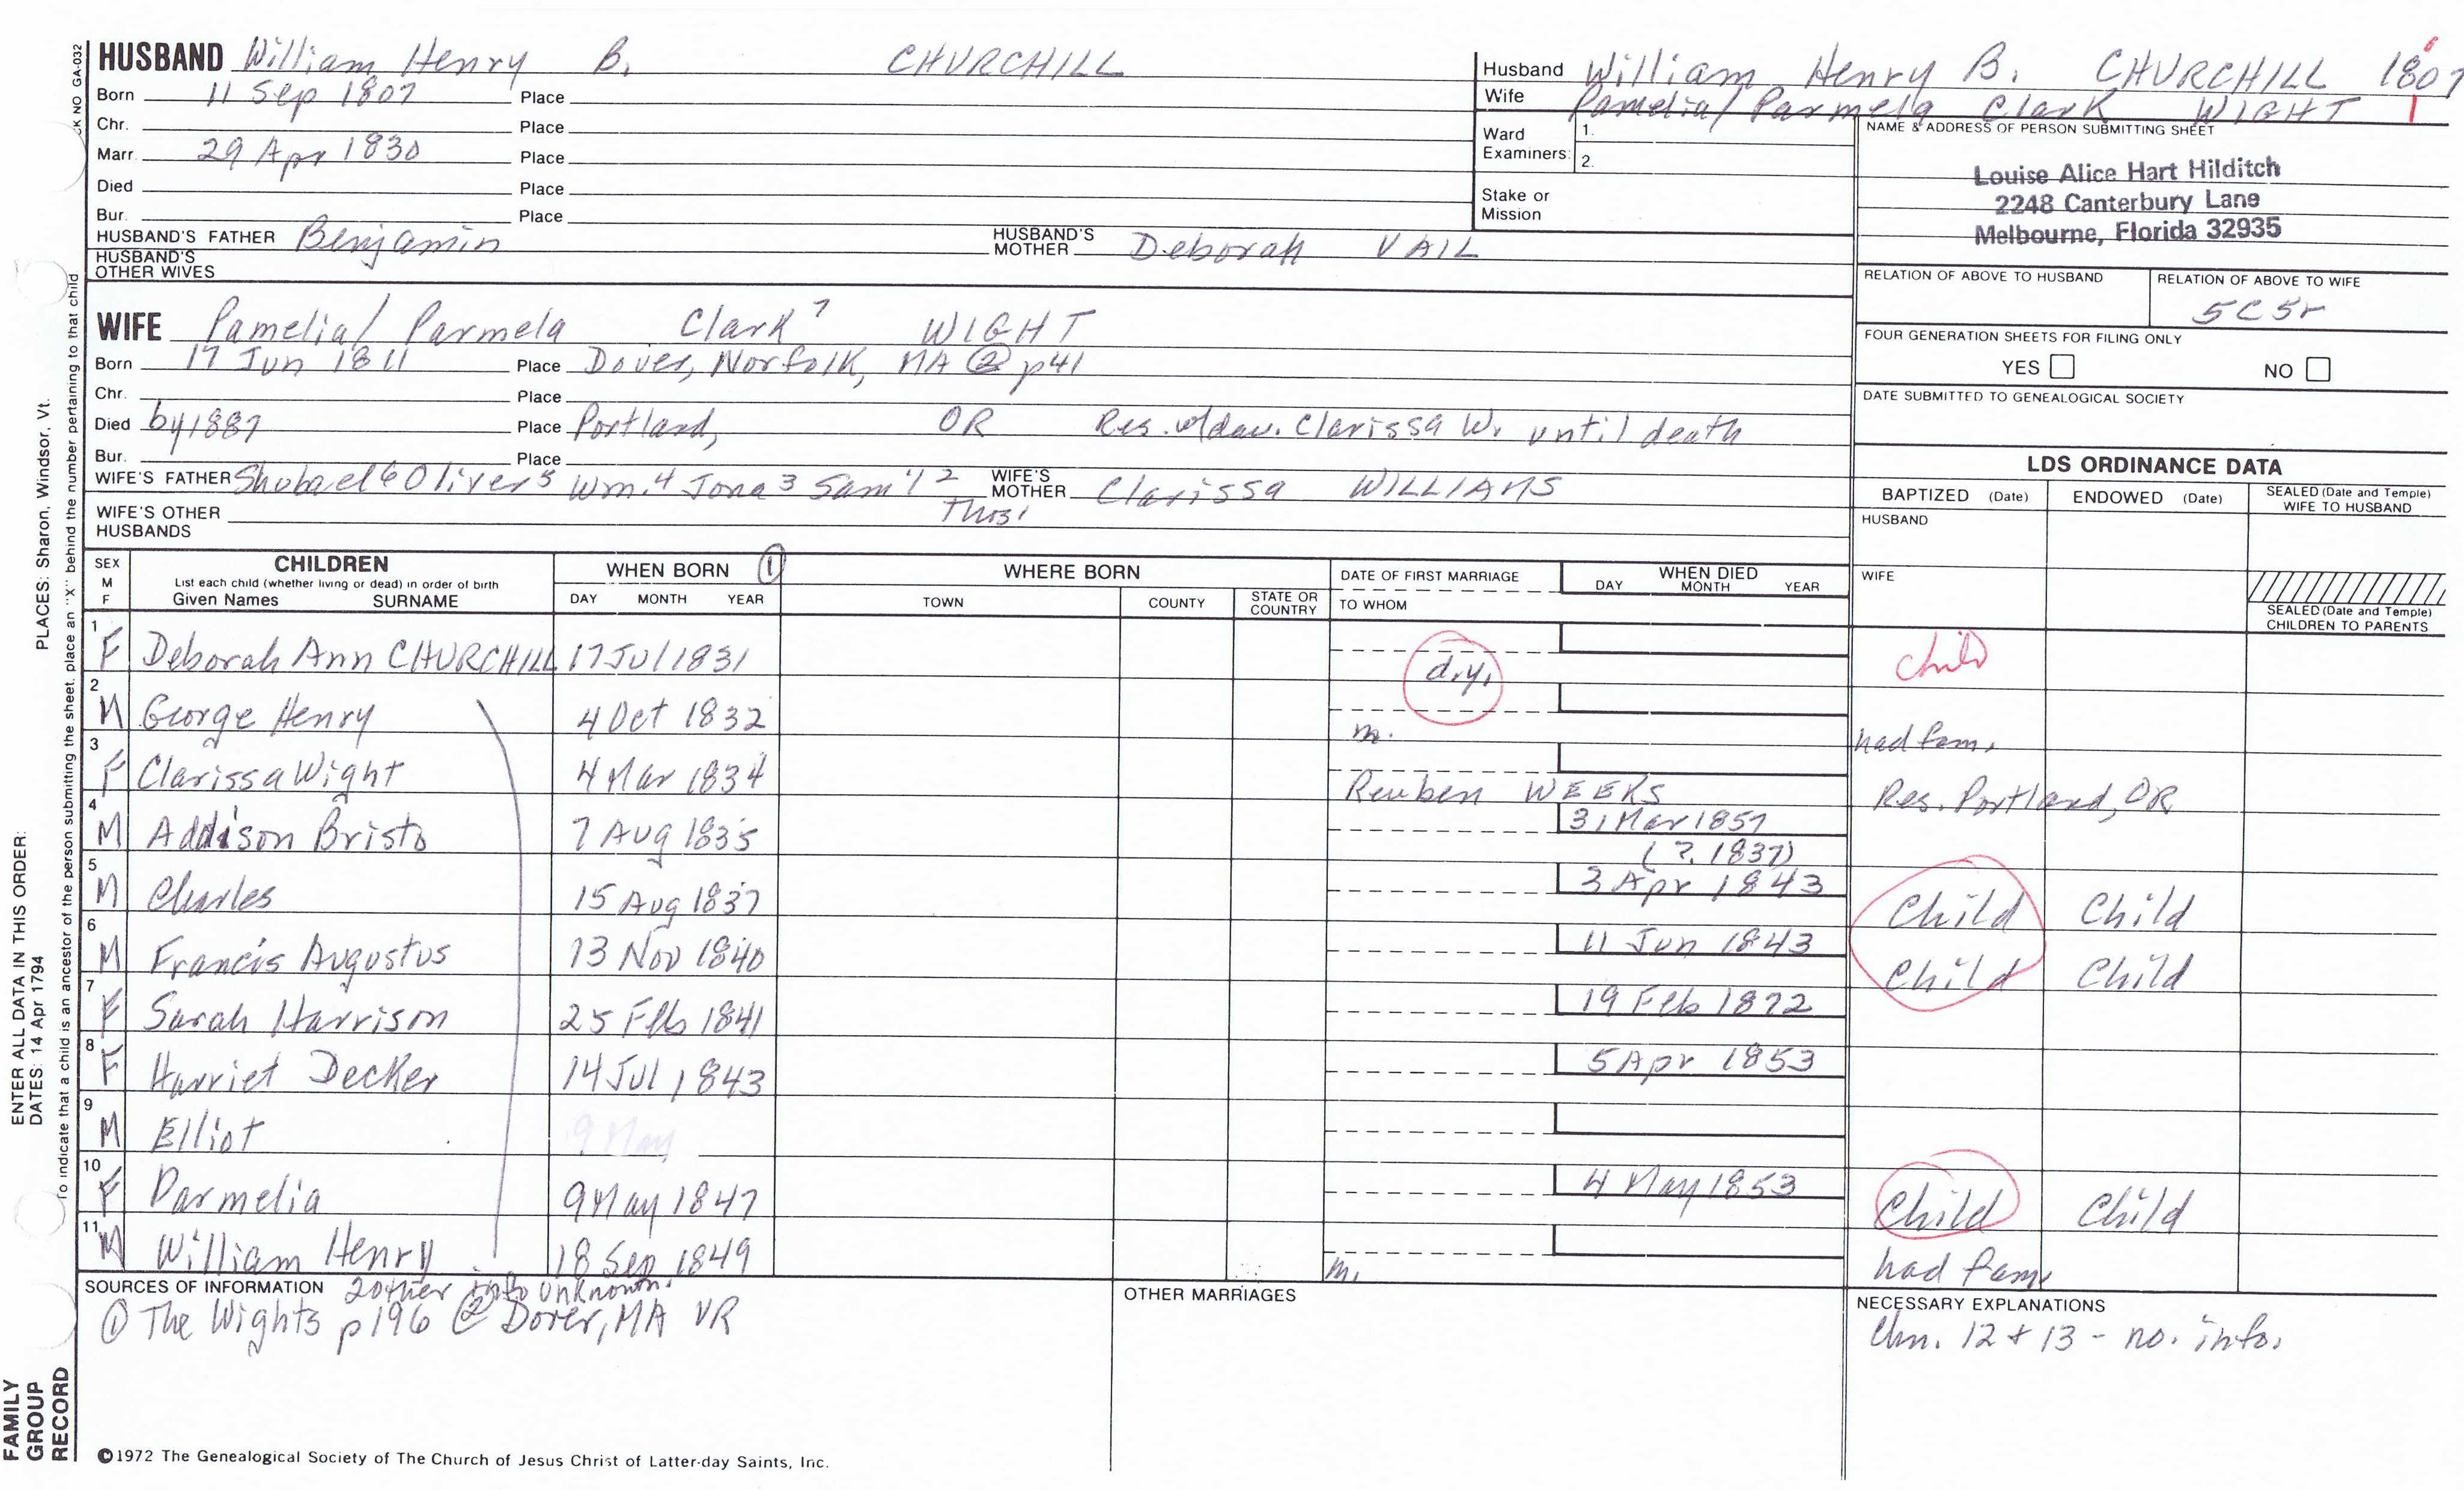 HUSBAND William Henry B. CHURCHILL
Born 11 Sep 1807 Place
Chr. Place
Marr. 29 Apr 1830 Place
Died Place
Bur. Place
HUSBAND'S FATHER Benjamin HUSBAND'S MOTHER Deborah VAIL
HUSBAND'S OTHER WIVES
Husband William Henry B. CHURCHILL 1807
Wife Pamelia/Parmela Clark WIGHT
Ward Examiners: 1.
2.
Stake or Mission
NAME & ADDRESS OF PERSON SUBMITTING SHEET
Louise Alice Hart Hilditch
2248 Canterbury Lane
Melbourne, Florida 32935
RELATION OF ABOVE TO HUSBAND RELATION OF ABOVE TO WIFE
5C5r
FOUR GENERATION SHEETS FOR FILING ONLY
YES NO
DATE SUBMITTED TO GENEALOGICAL SOCIETY
WIFE Pamelia/Parmela Clark 7 WIGHT
Born 17 Jun 1811 Place Dover, Norfolk, MA ② p41
Chr. Place
Died by 1887 Place Portland, OR Res. w/dau. Clarissa W. until death
Bur. Place
WIFE'S FATHER Shubael 6 Oliver 5 Wm. 4 Jona 3 Sam'l 2 Thos 1 WIFE'S MOTHER Clarissa WILLIAMS
WIFE'S OTHER HUSBANDS
LDS ORDINANCE DATA
BAPTIZED (Date) ENDOWED (Date) SEALED (Date and Temple) WIFE TO HUSBAND
HUSBAND
WIFE
SEALED (Date and Temple) CHILDREN TO PARENTS
SEX M F CHILDREN List each child (whether living or dead) in order of birth Given Names SURNAME
WHEN BORN ① DAY MONTH YEAR
WHERE BORN TOWN COUNTY STATE OR COUNTRY
DATE OF FIRST MARRIAGE TO WHOM
WHEN DIED DAY MONTH YEAR
1 F Deborah Ann CHURCHILL 17 Jul 1831 d.y. child
2 M George Henry 4 Oct 1832 m. had fam.
3 F Clarissa Wight 4 Mar 1834 Reuben WEEKS Res. Portland, OR
4 M Addison Bristo 7 Aug 1835 31 Mar 1857 (?. 1837)
5 M Charles 15 Aug 1837 3 Apr 1843 Child Child
6 M Francis Augustus 13 Nov 1840 11 Jun 1843 Child Child
7 F Sarah Harrison 25 Feb 1841 19 Feb 1872
8 F Harriet Decker 14 Jul 1843 5 Apr 1853
9 M Elliot 9 May
10 F Parmelia 9 May 1847 4 May 1853 Child Child
11 M William Henry 18 Sep 1849 m. had fam.
SOURCES OF INFORMATION 2 other info unknown.
① The Wights p196 ② Dover, MA VR
OTHER MARRIAGES
NECESSARY EXPLANATIONS
Chn. 12 + 13 - no. info.
©1972 The Genealogical Society of The Church of Jesus Christ of Latter-day Saints, Inc.
FAMILY GROUP RECORD
ENTER ALL DATA IN THIS ORDER:
DATES: 14 Apr 1794
PLACES: Sharon, Windsor, Vt.
To indicate that a child is an ancestor of the person submitting the sheet, place an "X" behind the number pertaining to that child
NO GA-032